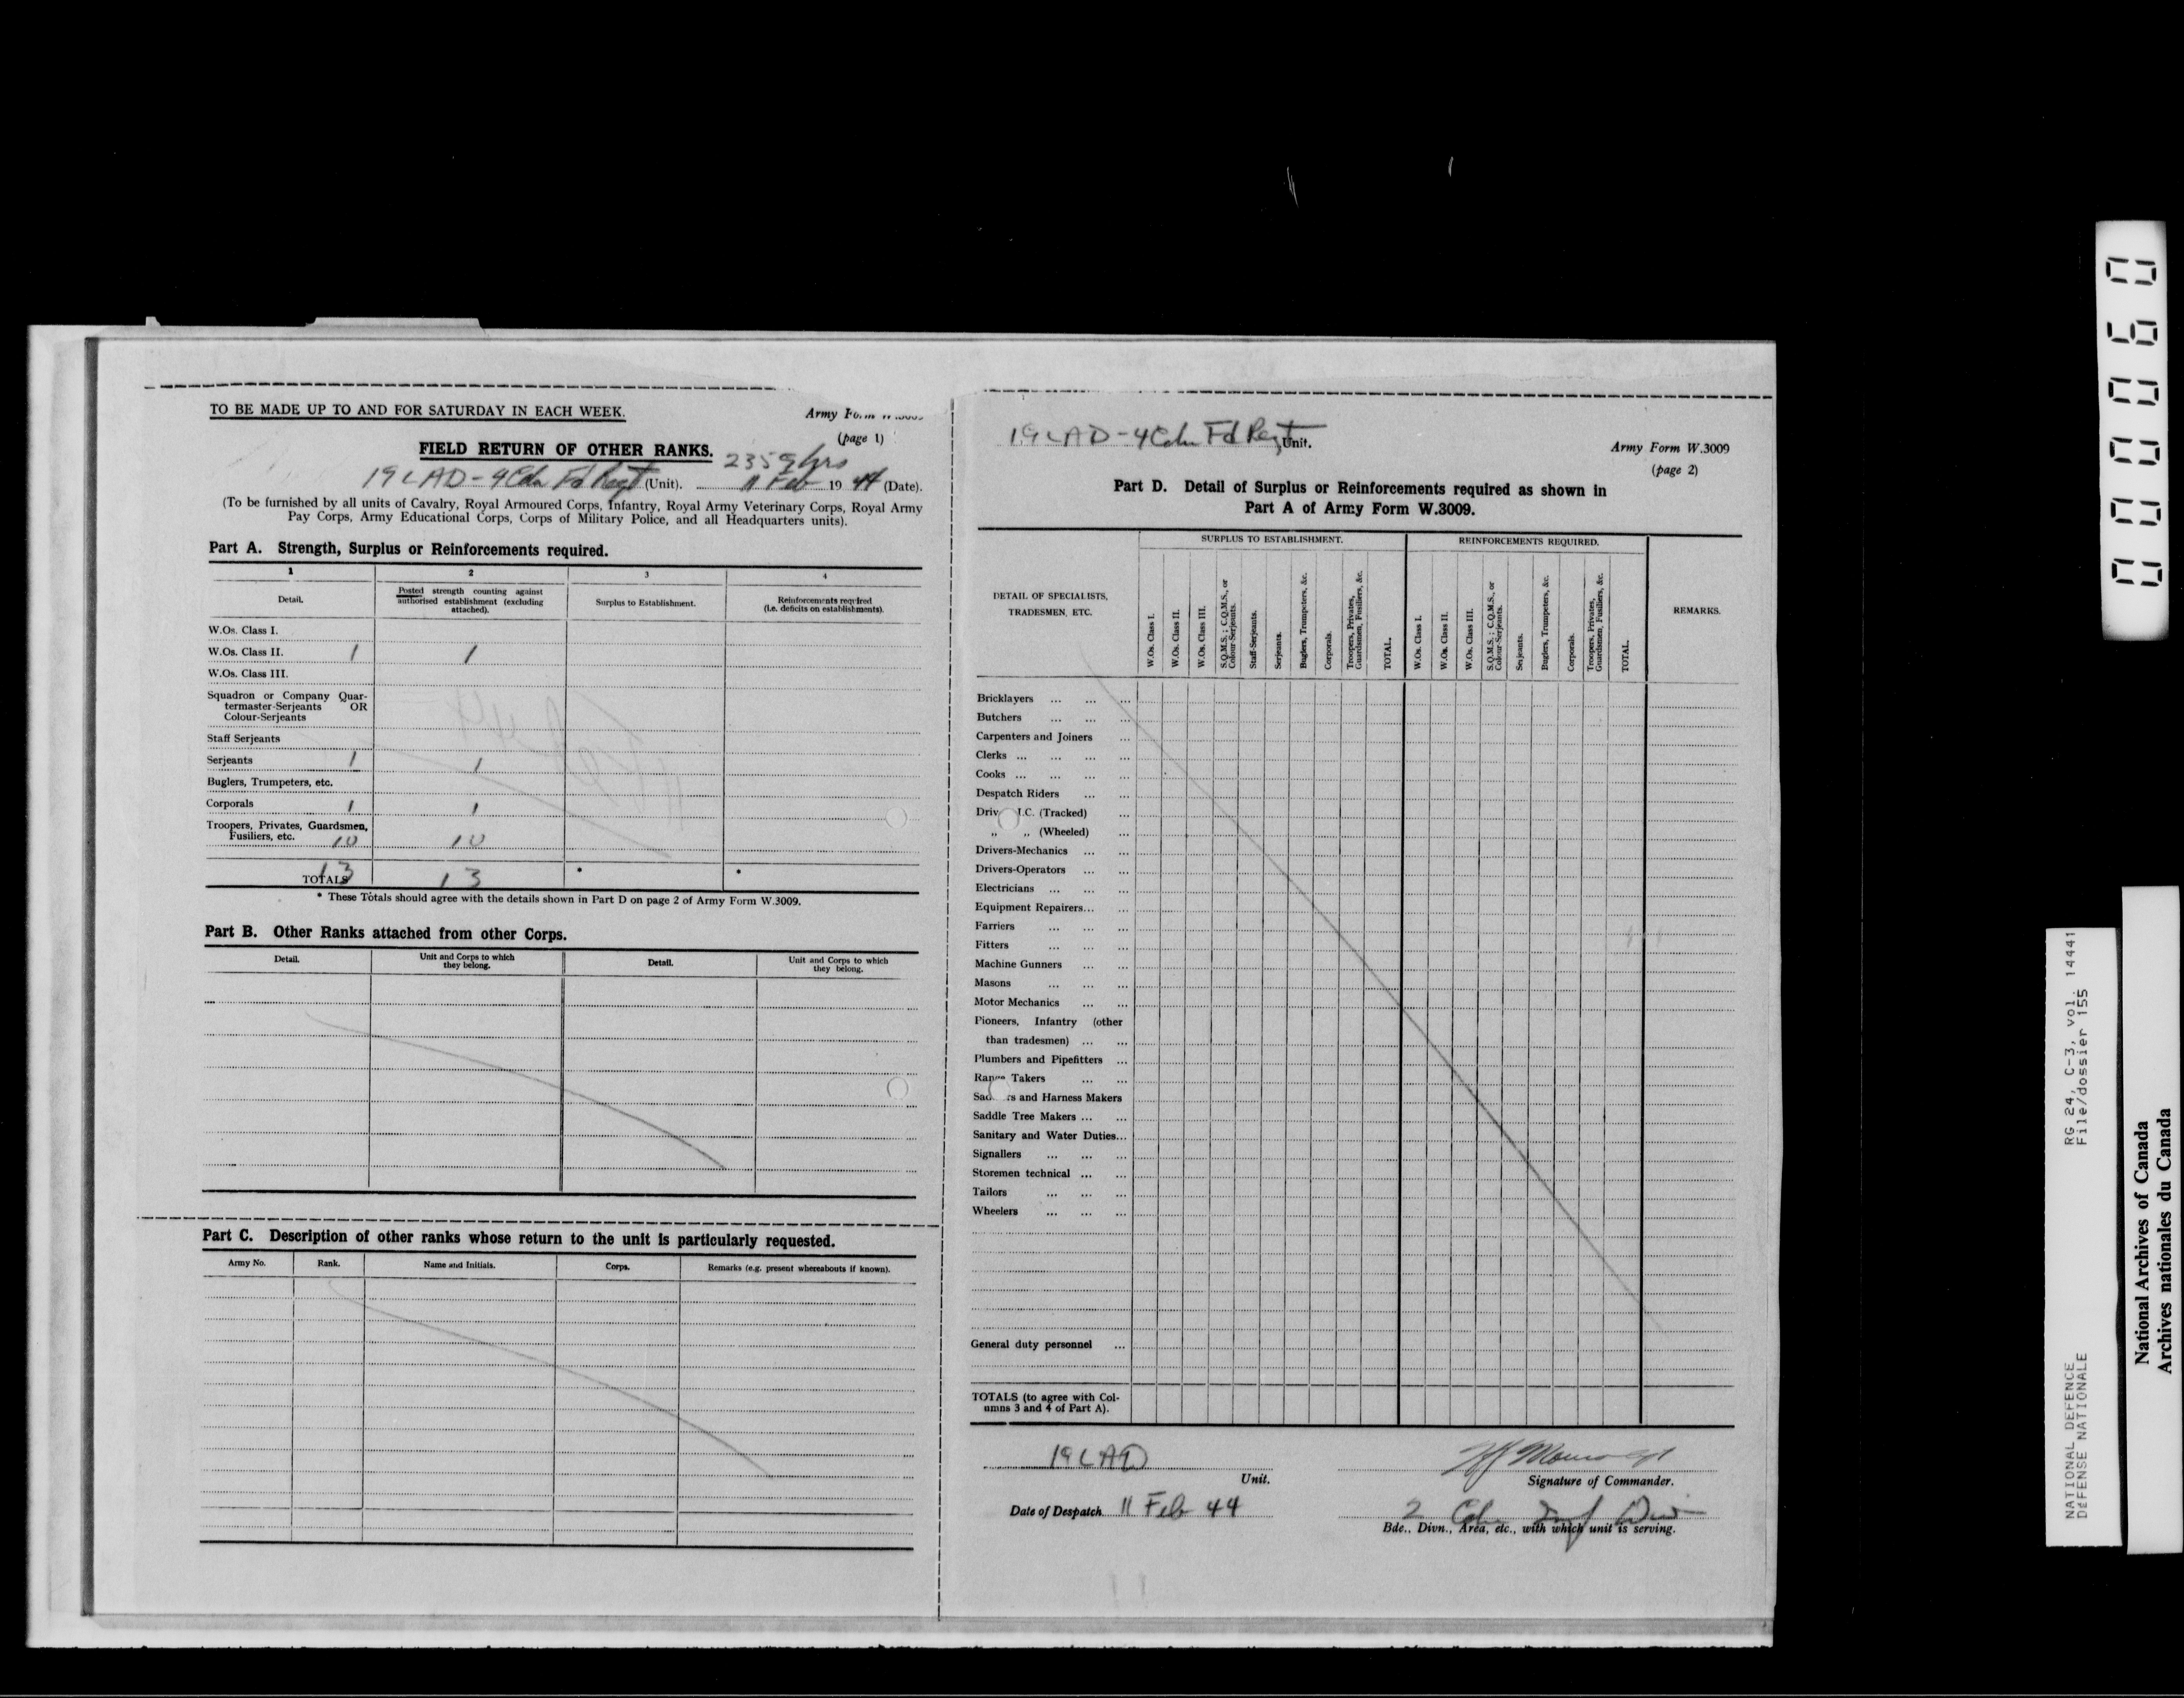 TO BE MADE UP TO AND FOR SATURDAY IN EACH WEEK.
Army Form W.3009
(page 1)
FIELD RETURN OF OTHER RANKS.
2359 hrs
19 LAD - 4 Cdn Fd Regt (Unit). 11 Feb 19 44 (Date).
(To be furnished by all units of Cavalry, Royal Armoured Corps, Infantry, Royal Army Veterinary Corps, Royal Army
Pay Corps, Army Educational Corps, Corps of Military Police, and all Headquarters units).
Part A. Strength, Surplus or Reinforcements required.
1 2 3 4
Detail. Posted strength counting against authorised establishment (excluding attached). Surplus to Establishment. Reinforcements required (i.e. deficits on establishments).
W.Os. Class I.
W.Os. Class II. 1 1
W.Os. Class III.
Squadron or Company Quar-
termaster-Serjeants OR
Colour-Serjeants
Staff Serjeants
Serjeants 1 1
Buglers, Trumpeters, etc.
Corporals 1 1
Troopers, Privates, Guardsmen,
Fusiliers, etc. 10 10
TOTALS 13 13 * *
* These Totals should agree with the details shown in Part D on page 2 of Army Form W.3009.
Part B. Other Ranks attached from other Corps.
Detail. Unit and Corps to which they belong. Detail. Unit and Corps to which they belong.
Part C. Description of other ranks whose return to the unit is particularly requested.
Army No. Rank. Name and Initials. Corps. Remarks (e.g. present whereabouts if known).
19 LAD - 4 Cdn Fd Regt Unit.
Army Form W.3009
(page 2)
Part D. Detail of Surplus or Reinforcements required as shown in
Part A of Army Form W.3009.
DETAIL OF SPECIALISTS,
TRADESMEN, ETC.
SURPLUS TO ESTABLISHMENT.
W.Os. Class I.
W.Os. Class II.
W.Os. Class III.
S.Q.M.S.; C.Q.M.S., or Colour-Serjeants.
Staff-Serjeants.
Serjeants.
Buglers, Trumpeters, &c.
Corporals.
Troopers, Privates, Guardsmen, Fusiliers, &c.
TOTAL.
REINFORCEMENTS REQUIRED.
W.Os. Class I.
W.Os. Class II.
W.Os. Class III.
S.Q.M.S.; C.Q.M.S., or Colour-Serjeants.
Serjeants.
Buglers, Trumpeters, &c.
Corporals.
Troopers, Privates, Guardsmen, Fusiliers, &c.
TOTAL.
REMARKS.
Bricklayers ... ... ...
Butchers ... ... ...
Carpenters and Joiners ...
Clerks ... ... ... ...
Cooks ... ... ... ...
Despatch Riders ... ...
Driv I.C. (Tracked) ...
„ „ (Wheeled) ...
Drivers-Mechanics ... ...
Drivers-Operators ... ...
Electricians ... ... ...
Equipment Repairers... ...
Farriers ... ... ...
Fitters ... ... ...
Machine Gunners ... ...
Masons ... ... ...
Motor Mechanics ... ...
Pioneers, Infantry (other
than tradesmen) ... ...
Plumbers and Pipefitters ...
Range Takers ... ...
Sad rs and Harness Makers
Saddle Tree Makers ... ...
Sanitary and Water Duties...
Signallers ... ... ...
Storemen technical ... ...
Tailors ... ... ...
Wheelers ... ... ...
General duty personnel ...
TOTALS (to agree with Col-
umns 3 and 4 of Part A).
19 LAD
Unit.
Signature of Commander.
Date of Despatch 11 Feb 44
2 Cdn Inf Div
Bde., Divn., Area, etc., with which unit is serving.
000060
NATIONAL DEFENCE RG 24, C-3, vol. 14441
DEFENSE NATIONALE File/dossier 155
National Archives of Canada
Archives nationales du Canada